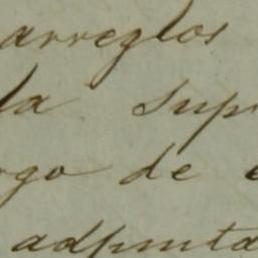 arreglos
la sup
go de
adjunta